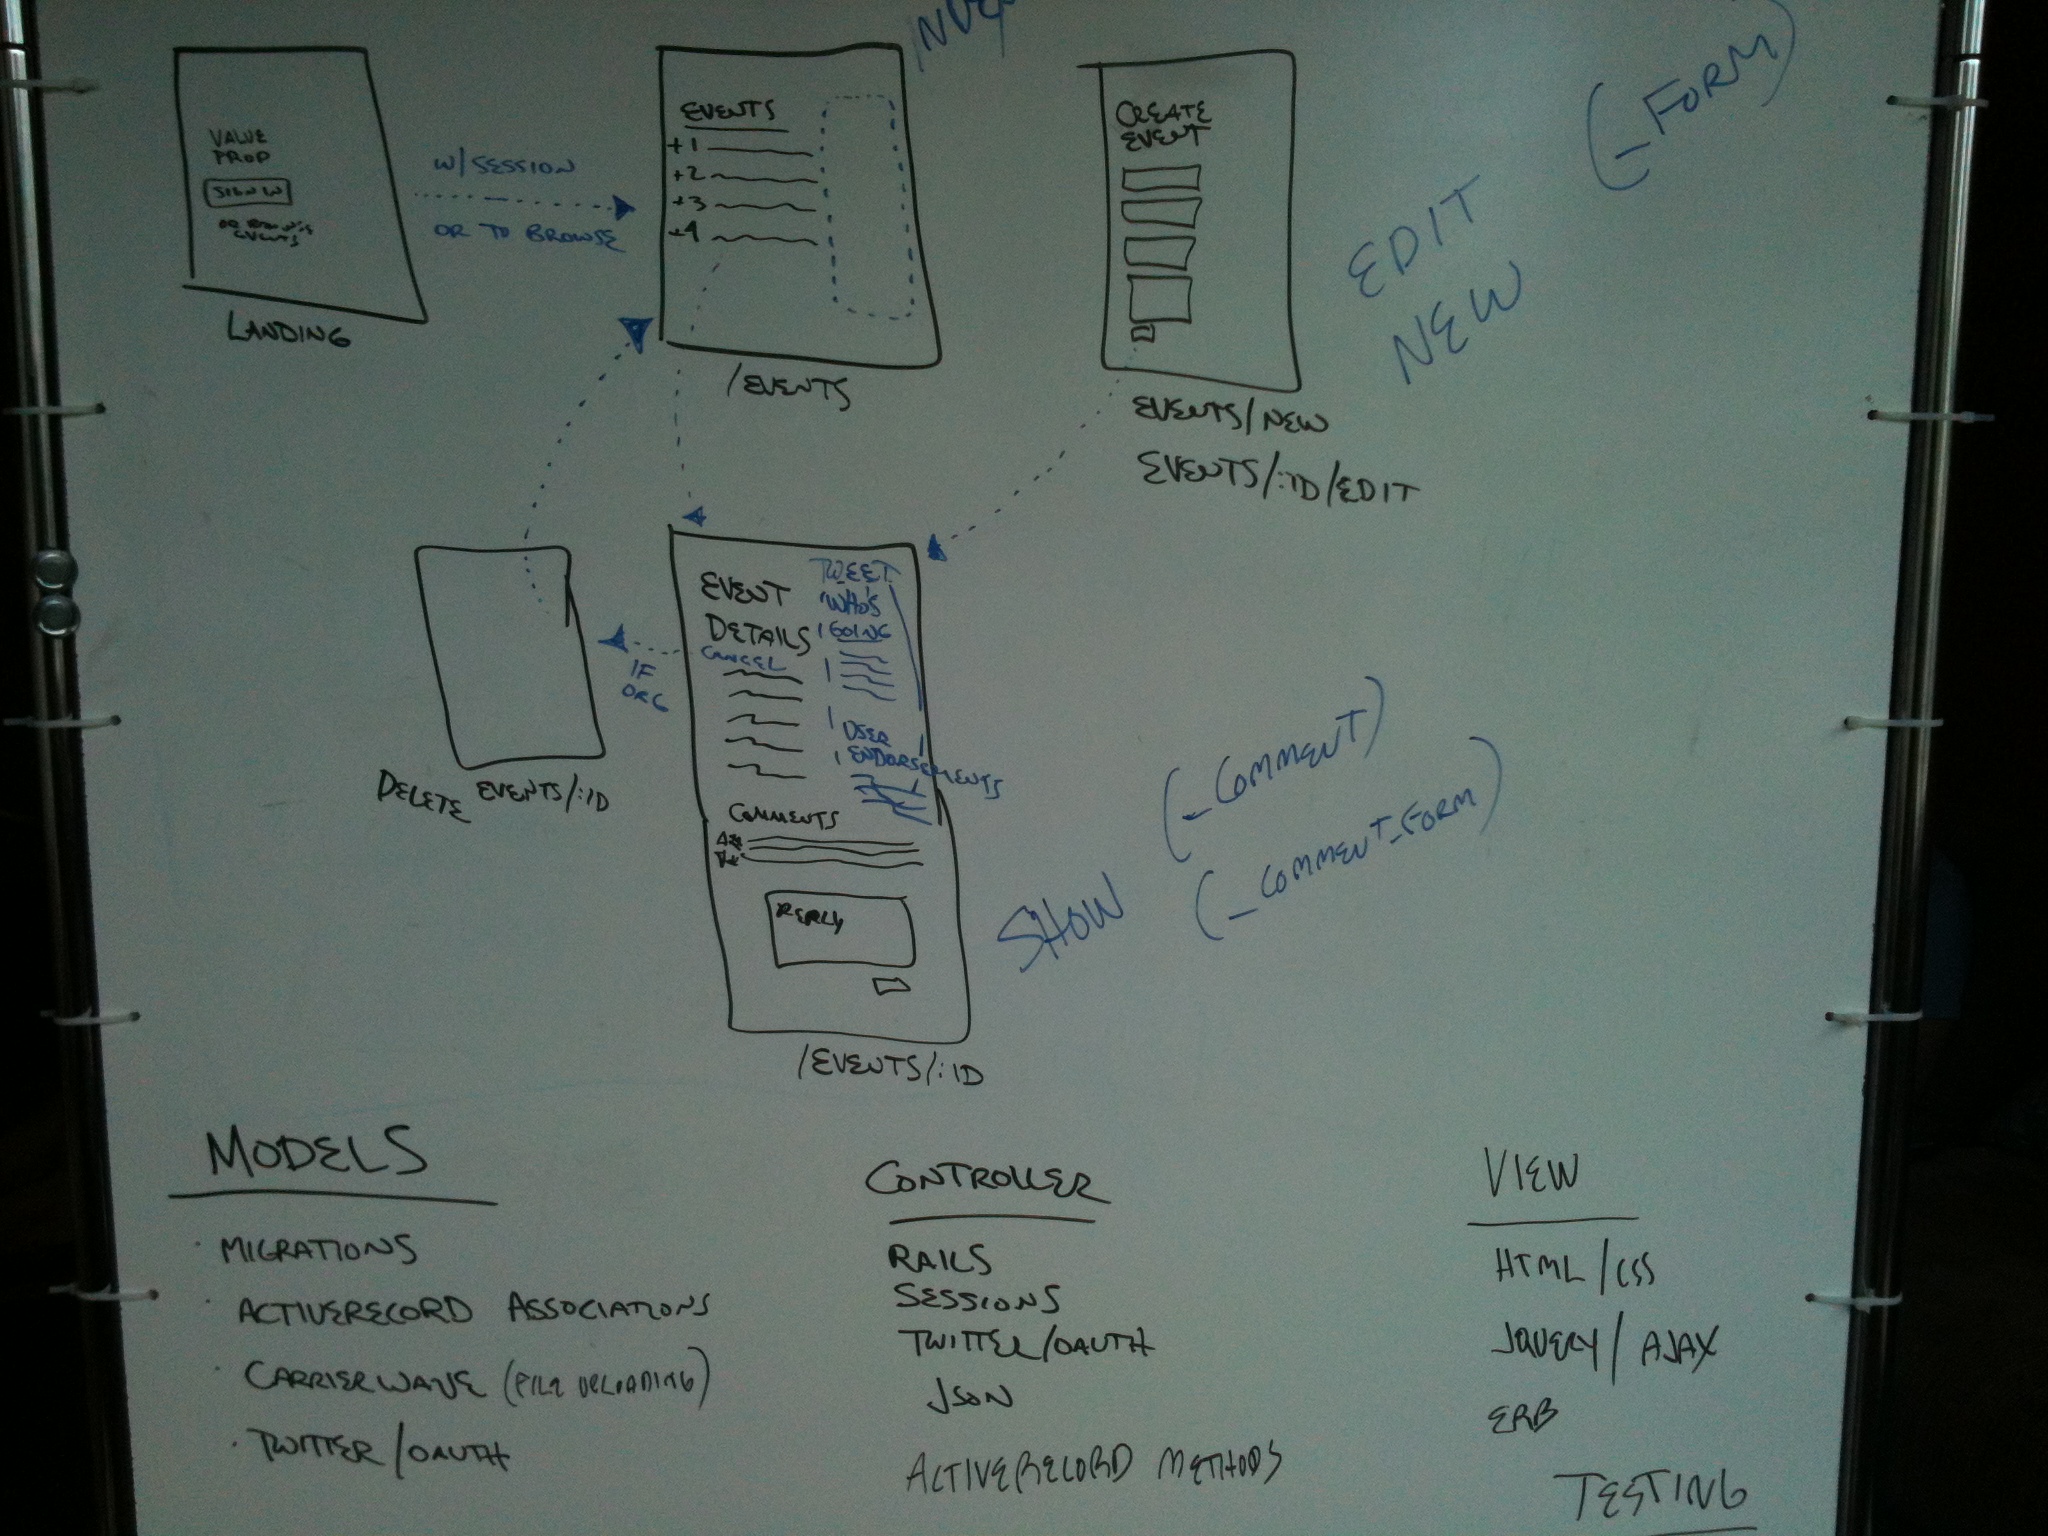 VALUE
PROP
SIGN IN
OR BROWSE
EVENTS
LANDING
W/SESSION
OR TO BROWSE
EVENTS
+1
+2
+3
+4
/EVENTS
CREATE
EVENT
EVENTS/NEW
EVENTS/:ID/EDIT
(_FORM)
EDIT
NEW
DELETE EVENTS/:ID
IF
ORG
EVENT
DETAILS
CANCEL
TWEET
WHO'S
GOING
USER
ENDORSEMENTS
COMMENTS
REPLY
/EVENTS/:ID
SHOW
(_COMMENT)
(_COMMENT_FORM)
MODELS
· MIGRATIONS
· ACTIVERECORD ASSOCIATIONS
· CARRIERWAVE (FILE UPLOADING)
· TWITTER/OAUTH
CONTROLLER
RAILS
SESSIONS
TWITTER/OAUTH
JSON
ACTIVERECORD METHODS
VIEW
HTML/CSS
JQUERY/AJAX
ERB
TESTING